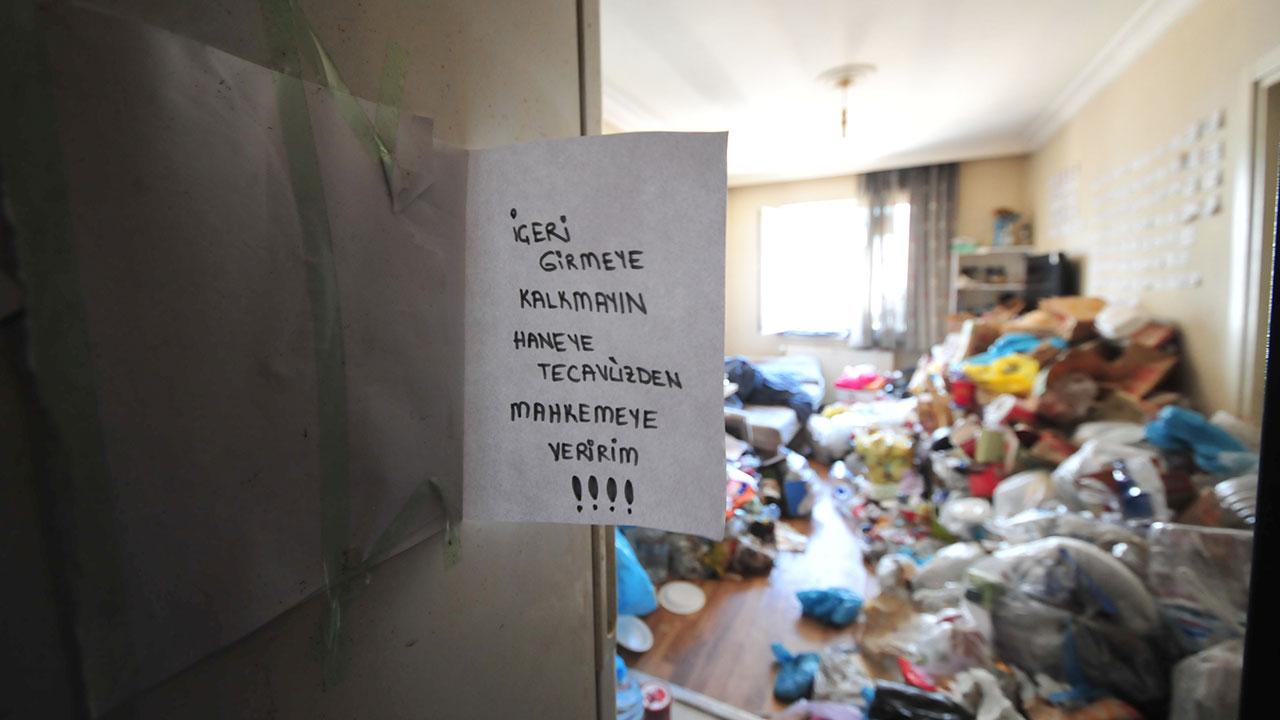 İÇERİ
GİRMEYE
KALKMAYIN
HANEYE
TECAVÜZDEN
MAHKEMEYE
VERİRİM
!!!!